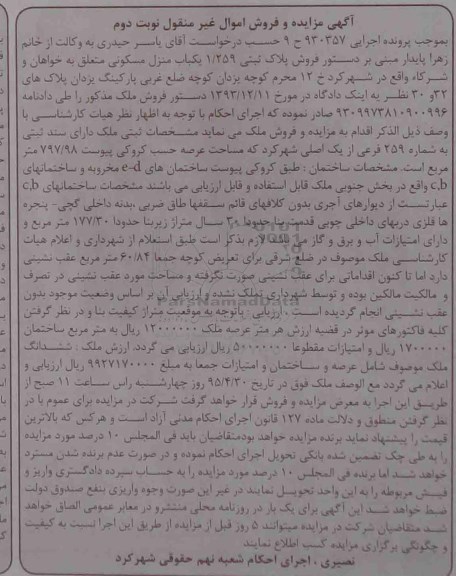 آگهی مزایده و فروش اموال غیر منقول نوبت دوم
بموجب پرونده اجرایی ۹۳۰۳۵۷ ح ۹ حسب درخواست آقای یاسر حیدری به وکالت از خانم
زهرا پایدار مبنی بر دستور فروش پلاک ثبتی ۱/۲۵۹ یکباب منزل مسکونی متعلق به خواهان و
شرکاء واقع در شهرکرد خ ۱۲ محرم کوچه یزدان کوچه ضلع غربی پارکینگ یزدان پلاک های
۳۲و ۳۰ نظر به اینک دادگاه در مورخ ۱۳۹۳/۱۲/۱۱ دستور فروش ملک مذکور را طی دادنامه
۹۳۰۹۹۷۳۸۱۰۹۰۰۹۹۶ صادر نموده که اجرای احکام با توجه به اظهار نظر هیات کارشناسی با
وصف ذیل الذکر اقدام به مزایده و فروش ملک می نماید مشخصات ثبتی ملک دارای سند ثبتی
به شماره ۲۵۹ فرعی از یک اصلی شهرکرد که مساحت عرصه حسب کروکی پیوست ۷۹۷/۹۸ متر
مربع است. مشخصات ساختمان : طبق کروکی پیوست ساختمان های e-d مخروبه و ساختمانهای
c,b واقع در بخش جنوبی ملک قابل استفاده و قابل ارزیابی می باشند مشخصات ساختمانهای c,b
عبارتست از دیوارهای آجری بدون کلافهای قائم سقفها طاق ضربی ،بدنه داخلی گچی- پنجره
ها فلزی دربهای داخلی چوبی قدمت بنا حدودا ۳۰ سال متراژ زیربنا حدودا ۱۷۷/۳۰ متر مربع و
دارای امتیازات آب و برق و گاز می باشد. لازم بذکر است طبق استعلام از شهرداری و اعلام هیات
کارشناسی ملک موصوف در ضلع شرقی برای تعریض کوچه جمعا ۶۰/۸۴ متر مربع عقب نشینی
دارد اما تا کنون اقداماتی برای عقب نشینی صورت نگرفته و مساحت مورد عقب نشینی در تصرف
و مالکیت مالکین بوده و توسط شهرداری تملک نشده و ارزیابی آن بر اساس وضعیت موجود بدون
عقب نشینی انجام گردیده است . ارزیابی : باتوجه به موقعیت متراژ کیفیت بنا و در نظر گرفتن
کلیه فاکتورهای موثر در قضیه ارزش هر متر عرصه ملک ۱۲۰۰۰۰۰۰ ریال به متر مربع ساختمان
۱۷۰۰۰۰۰ ریال و امتیازات مقطوعا ۵۰۰۰۰۰۰۰ ریال ارزیابی می گردد. ارزش ملک : ششدانگ
ملک موصوف شامل عرصه و ساختمان و امتیازات جمعا به مبلغ ۹۹۲۷۱۷۰۰۰۰ ریال ارزیابی و
اعلام می گردد مع الوصف ملک فوق در تاریخ ۹۵/۴/۳۰ روز چهارشنبه راس ساعت ۱۱ صبح از
طریق این اجرا به معرض مزایده و فروش قرار خواهد گرفت شرکت در مزایده برای عموم با در
نظر گرفتن منطوق و دلالت ماده ۱۲۷ قانون اجرای احکام مدنی آزاد است و هرکس که بالاترین
قیمت را پیشنهاد نماید برنده مزایده خواهد بودمتقاضیان باید فی المجلس ۱۰ درصد مورد مزایده
را به طی چک تضمین شده بانکی تحویل اجرای احکام نموده و در صورت عدم برنده شدن مسترد
خواهد شد اما برنده فی المجلس ۱۰ درصد مورد مزایده را به حساب سپرده دادگستری واریز و
فیش مربوطه را به این واحد تحویل نمایند در غیر این صورت وجوه واریزی بنفع صندوق دولت
ضبط خواهد شد این آگهی برای یک بار در روزنامه محلی منتشر و در معابر عمومی الصاق خواهد
شد متقاضیان شرکت در مزایده میتوانند ۵ روز قبل از مزایده از طریق این اجرا نسبت به کیفیت
و چگونگی برگزاری مزایده کسب اطلاع نمایند
نصیری ، اجرای احکام شعبه نهم حقوقی شهرکرد